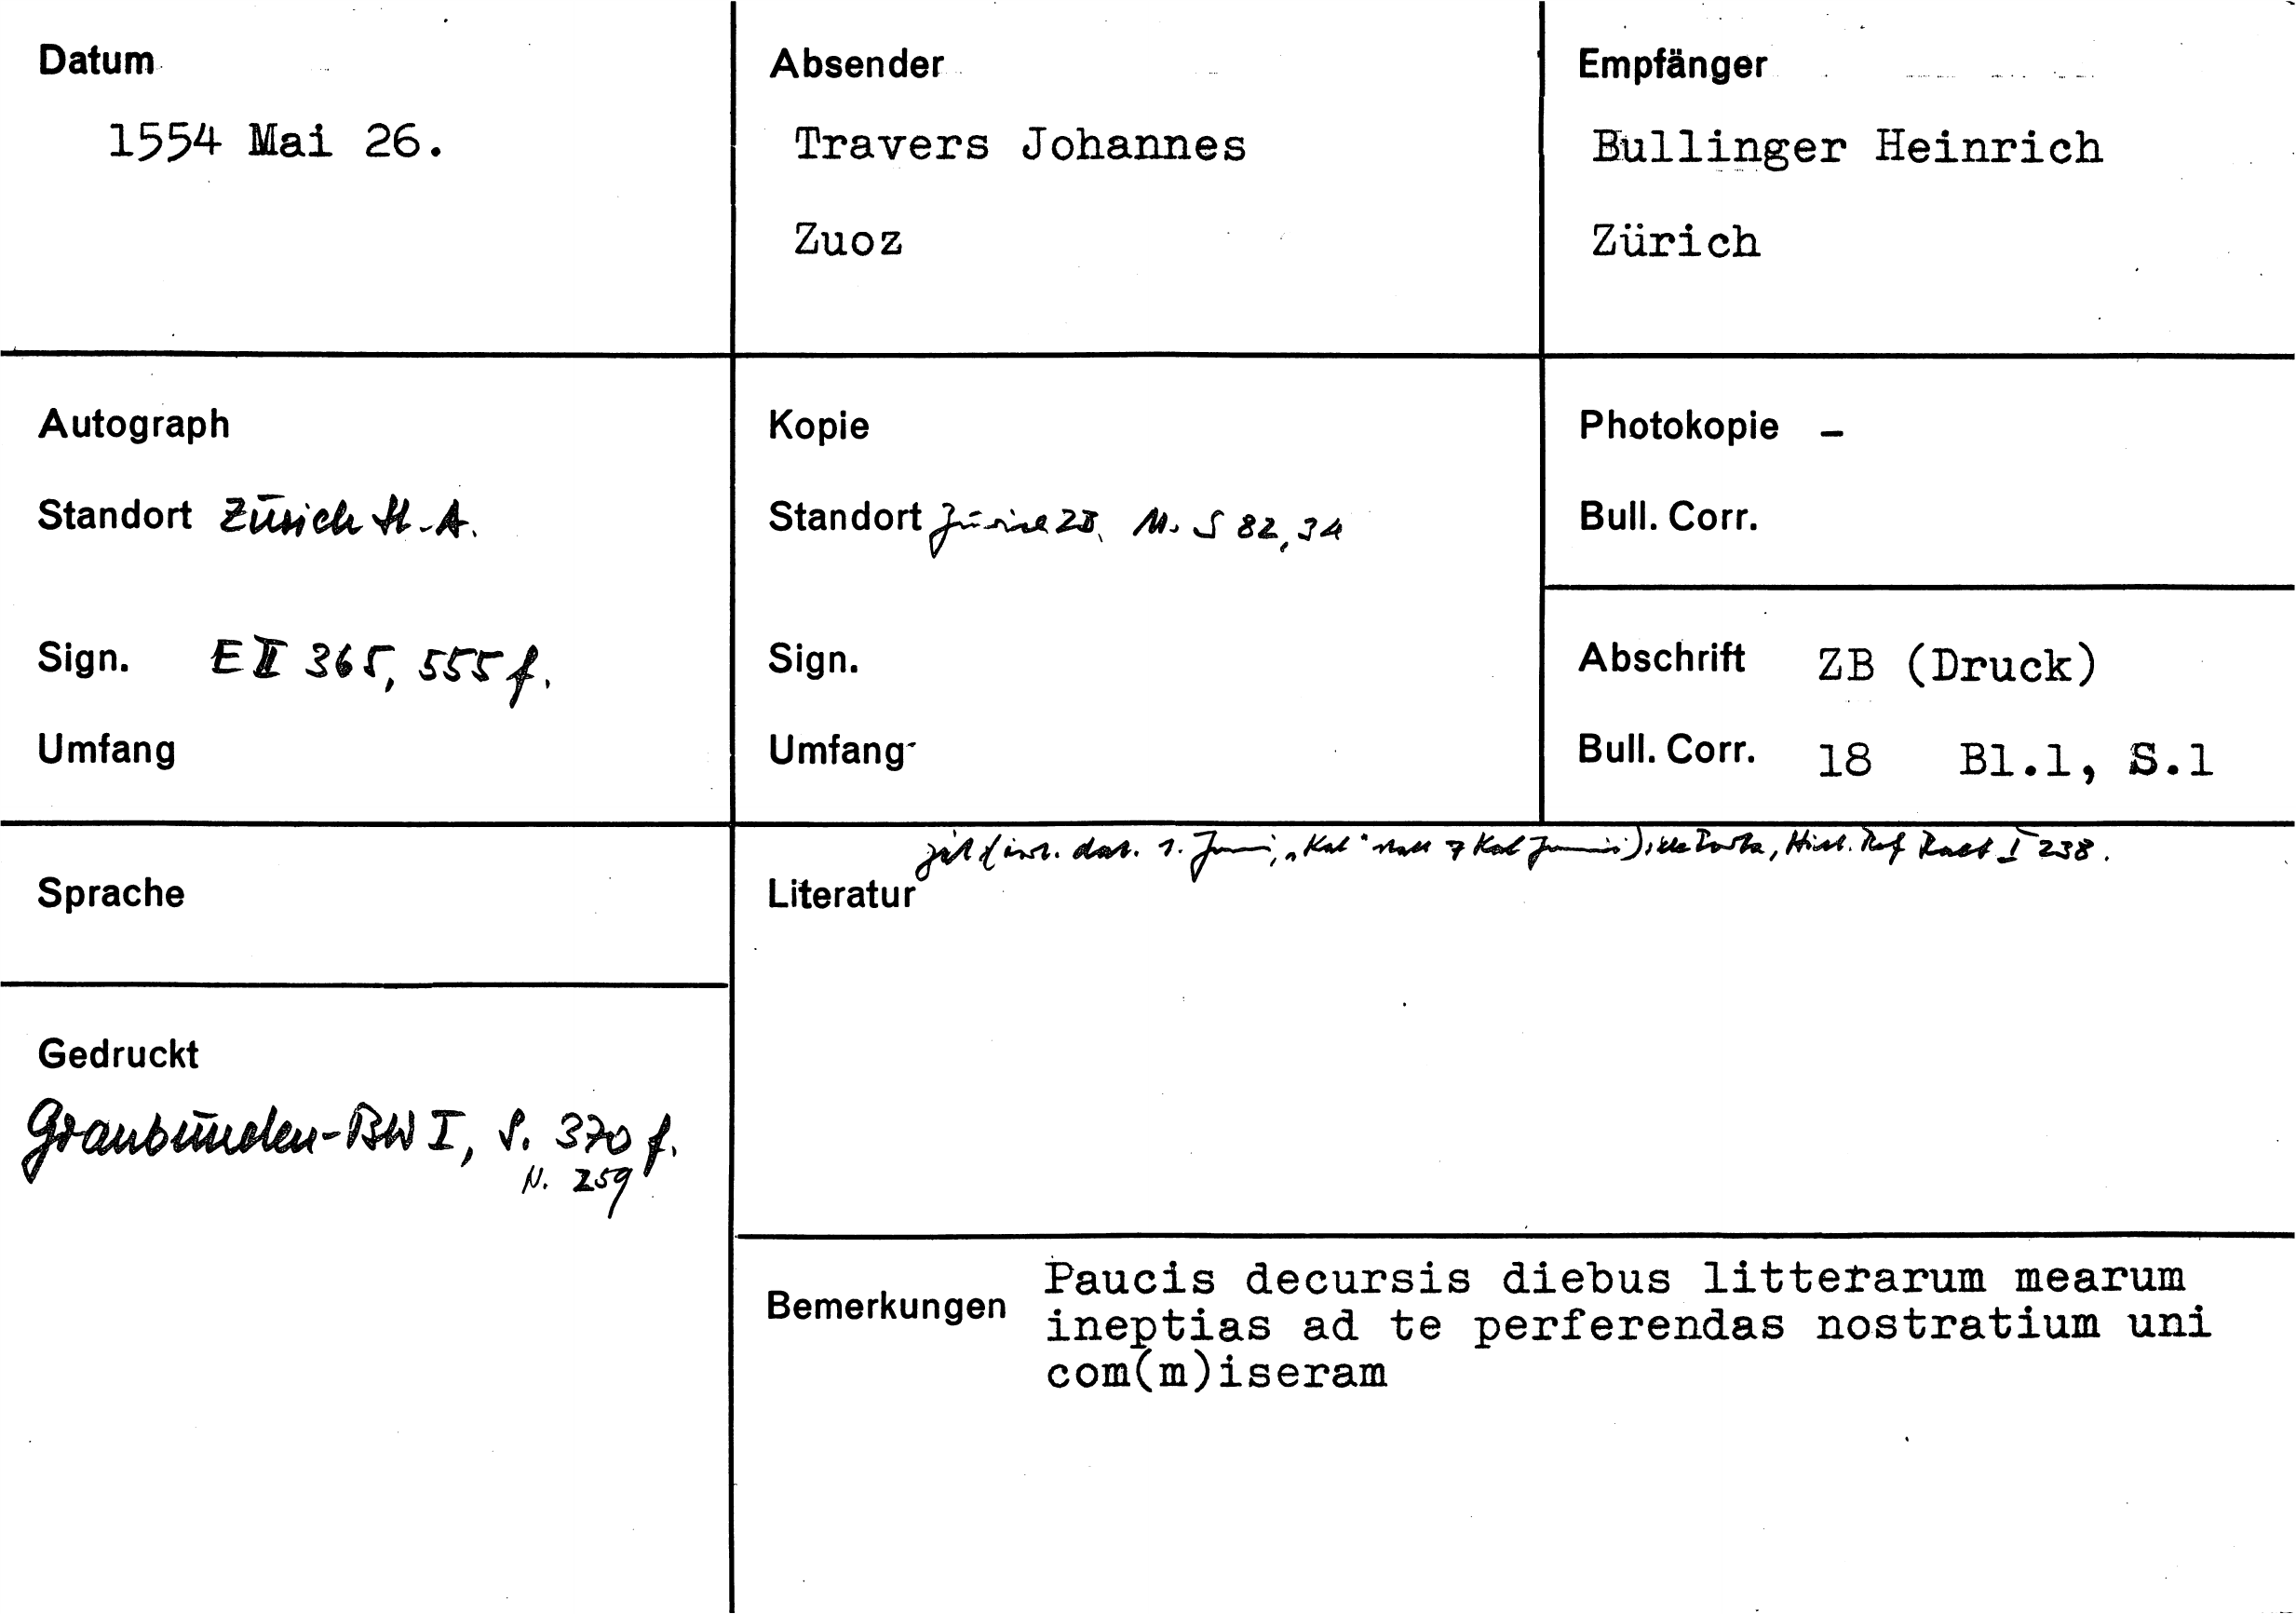 Datum
1554 Mai 26.
Absender
Travers Johannes
Zuoz
Empfänger
Bullinger Heinrich
Zürich
Autograph
Standort Zürich St.A.
Sign. E II 365, 555 f.
Umfang
Kopie
Standort Zürich ZB, Ms. S 82, 34
Sign.
Umfang
Photokopie –
Bull. Corr.
Abschrift ZB (Druck)
Bull. Corr. 18 Bl.1, S.1
Sprache
Gedruckt
Graubünden-BW I, S. 370 f.
N. 259
zit (irrt. dat. 1. Juni, „Kal" statt 7 Kal Junii) Porta, Hist. Ref Raet I 238.
Literatur
Bemerkungen
Paucis decursis diebus litterarum mearum
ineptias ad te perferendas nostratium uni
com(m)iseram